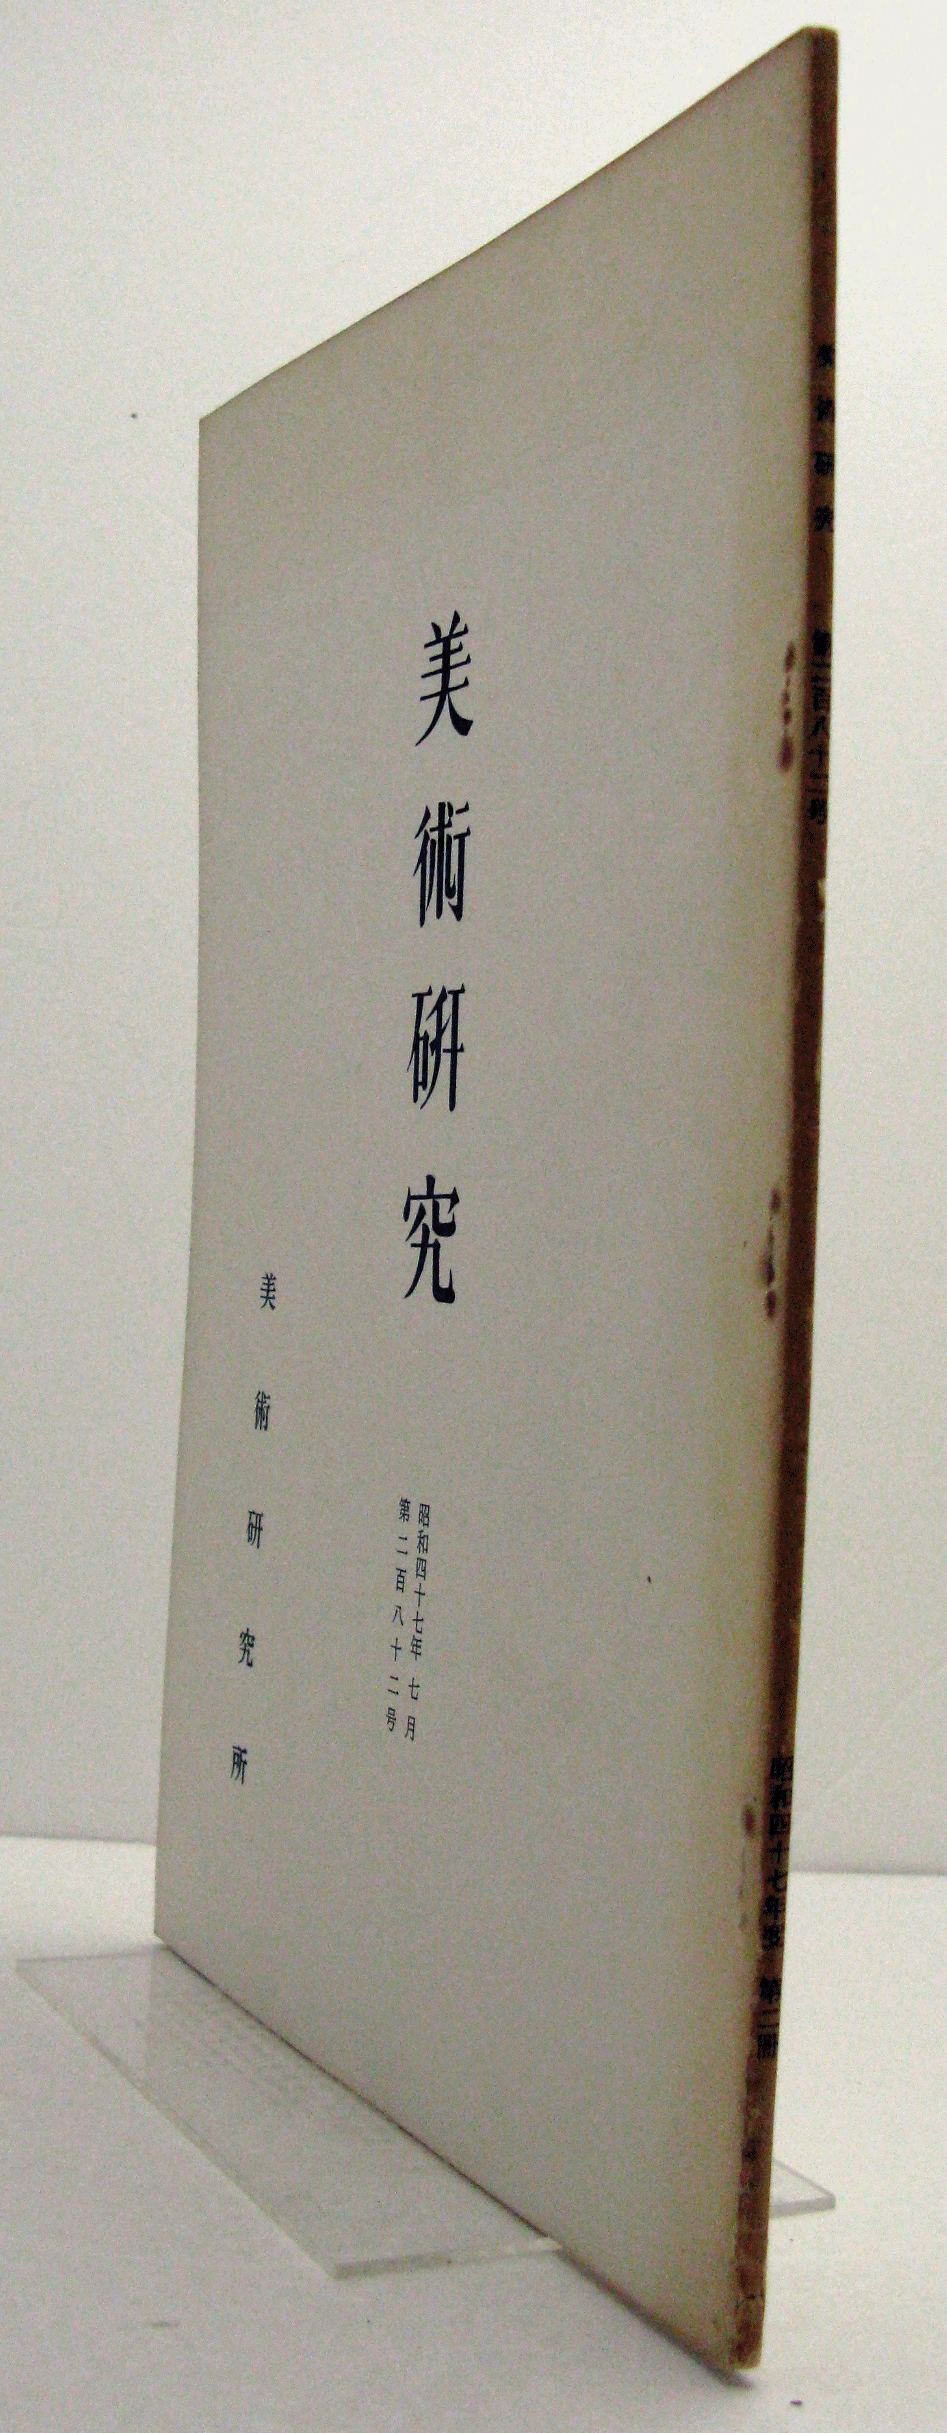 美術研究
昭和四十七年七月
第二百八十二号
美術研究所
美術研究 第二百八十二号 昭和四十七年度 第二冊